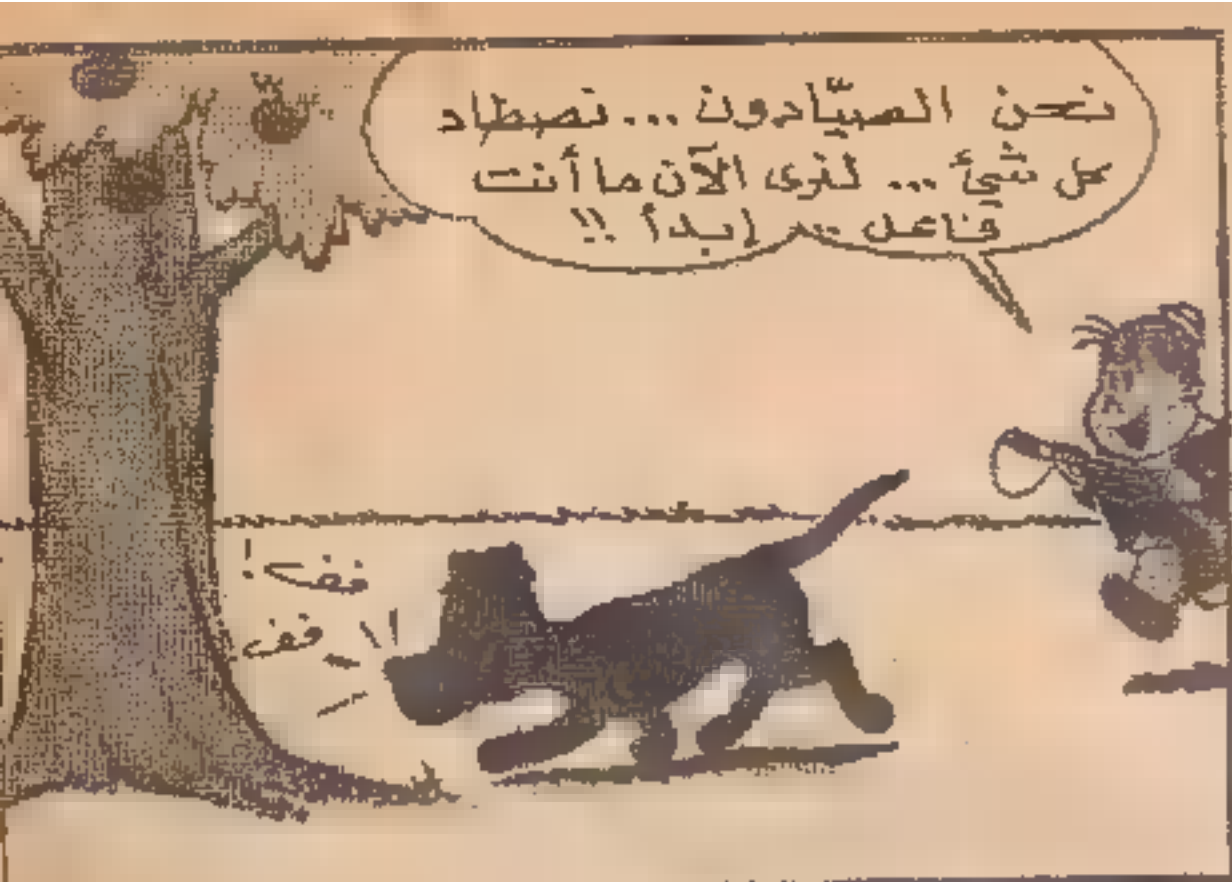 نحن الصيّادون ... نصطاد
كل شيئ ... لنرى الآن ما أنت
فاعل ... إبدأ !!
هف !
هف